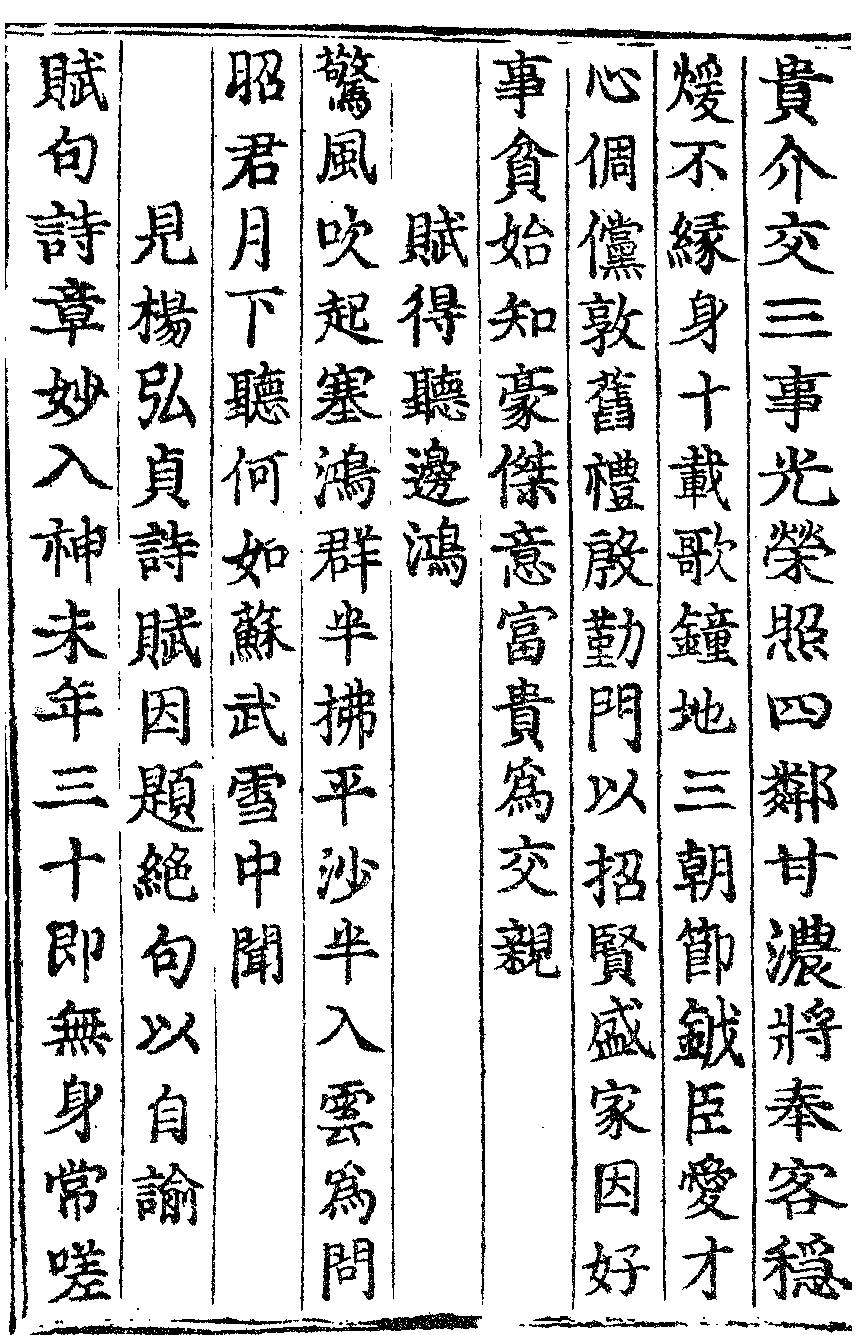 貴介交三事光榮照四鄰甘濃將奉客穩
煖不緣身十載歌鐘地三朝節鉞臣愛才
心倜儻敦舊禮殷勤門以招賢盛家因好
事貧始知豪傑意富貴為交親
賦得聽邊鴻
驚風吹起塞鴻群半拂平沙半入雲為問
昭君月下聽何如蘇武雪中聞
見楊弘貞詩賦因題絕句以自諭
賦句詩章妙入神未年三十即無身常嗟